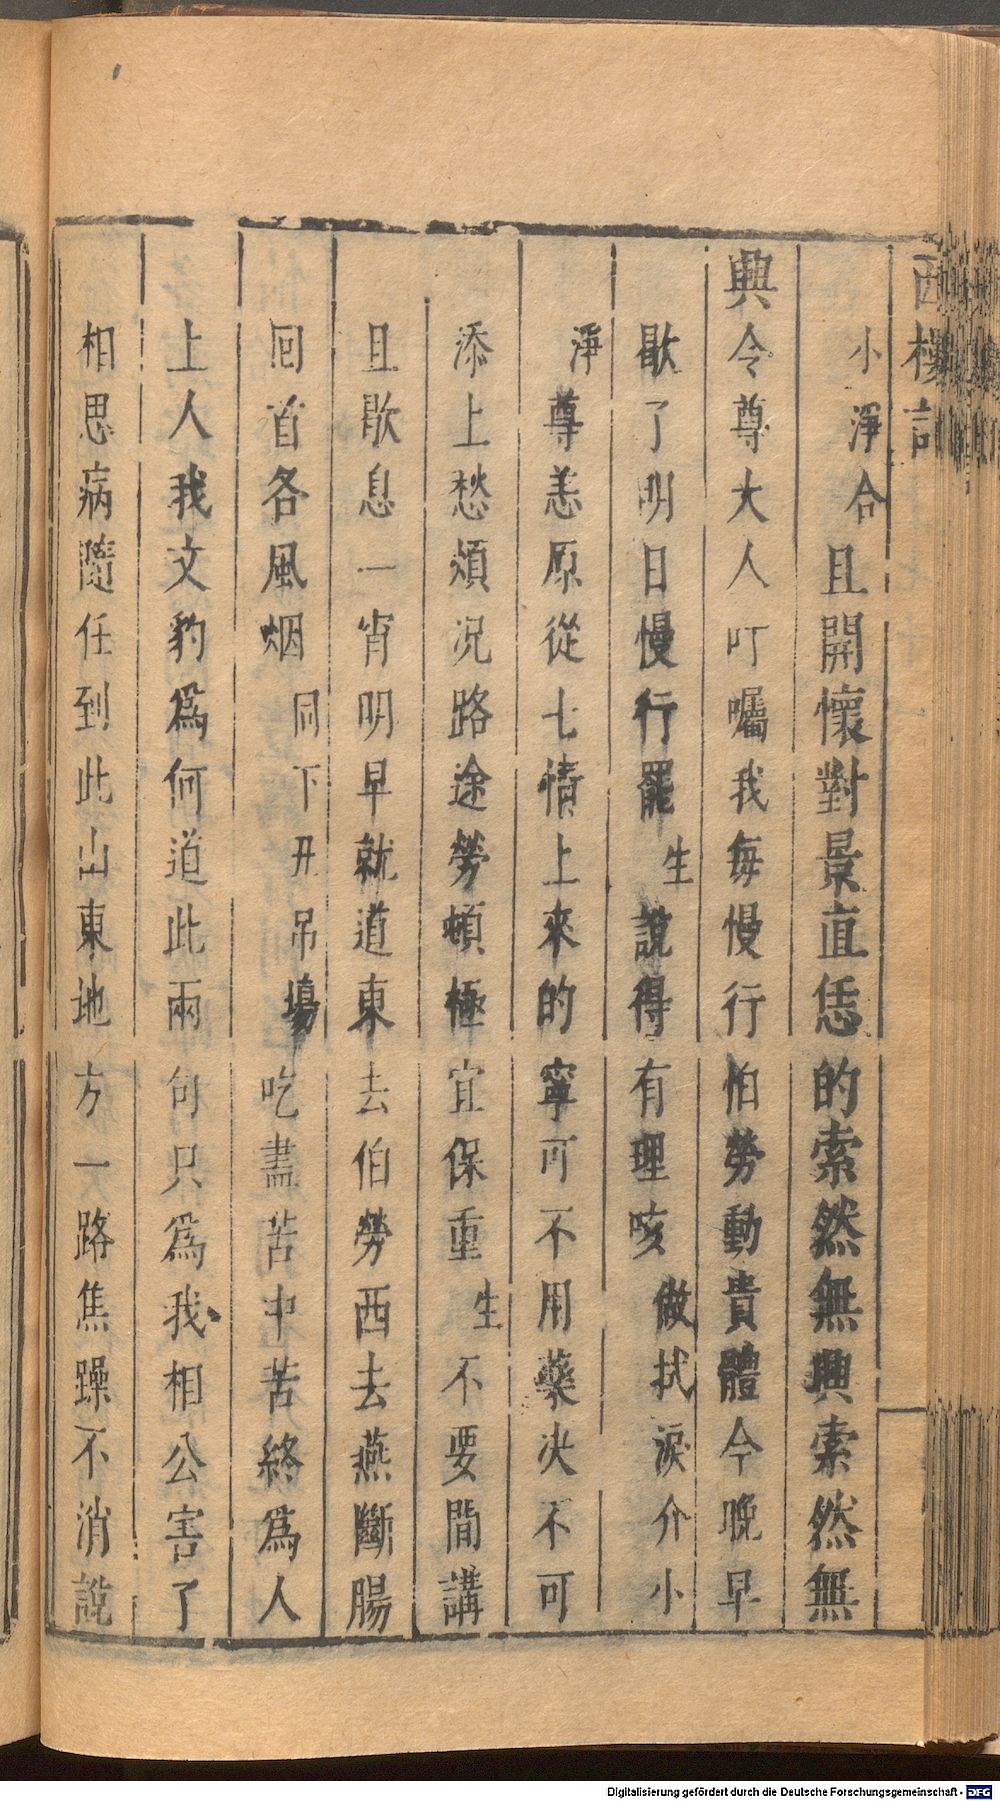 西樓記
小淨合且開懷對景直恁的索然無興索然無
興令尊大人叮囑我每慢行怕勞動貴體今晚早
歇了明日慢行罷生說得有理咳做拭淚介小
淨尊恙原從七情上來的寧可不用藥決不可
添上愁煩况路途勞頓極宜保重生不要閒講
且歇息一宵明早就道東去伯勞西去燕斷腸
回首各風烟同下丑吊塲吃盡苦中苦終爲人
上人我文豹爲何道此兩句只爲我相公害了
相思病隨任到此山東地方一路焦躁不消說
Digitalisierung gefördert durch die Deutsche Forschungsgemeinschaft - DFG